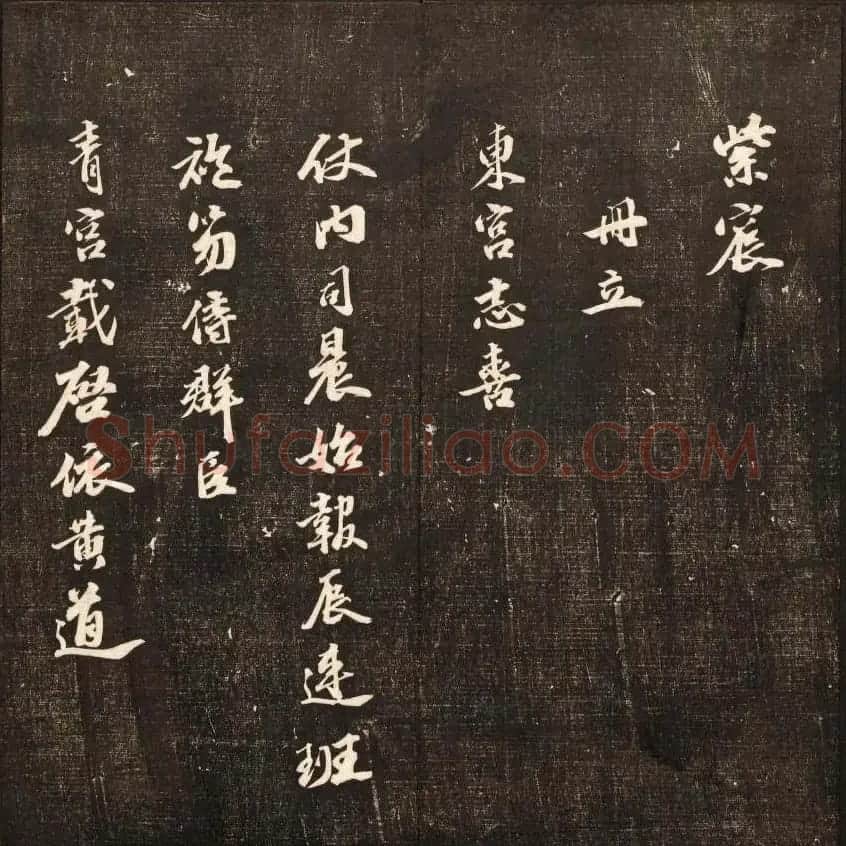 紫宸
冊立
東宮志喜
仗内司晨始報辰連班
袍笏侍群臣
青宮戴啓依黄道
Shufaziliao.COM